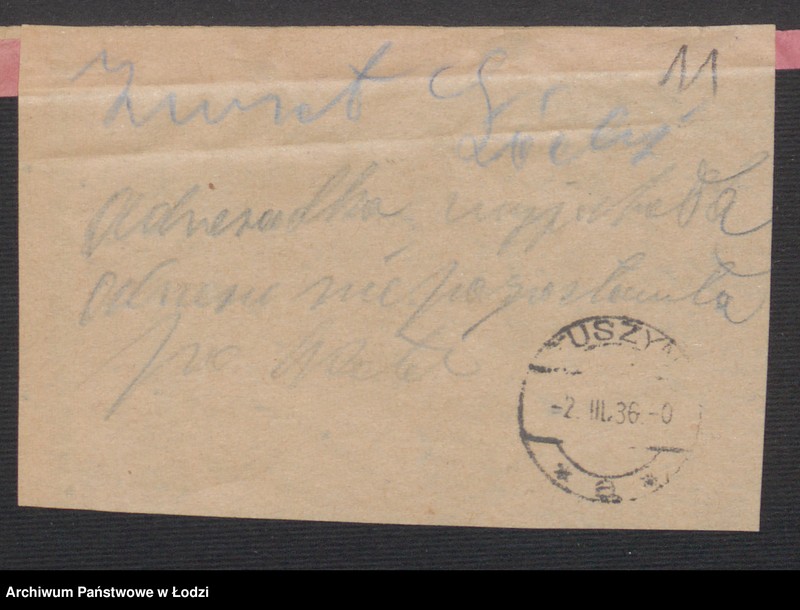 11
Zwrot
Łódź
Adresatka wyjechała
adresu nie pozostawiła
TUSZYN
-2.III.36.-0
* a *
Archiwum Państwowe w Łodzi